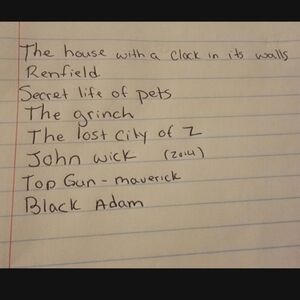 The house with a clock in its walls
Renfield
Secret life of pets
The grinch
The lost city of Z
John wick (2014)
Top Gun - maverick
Black Adam